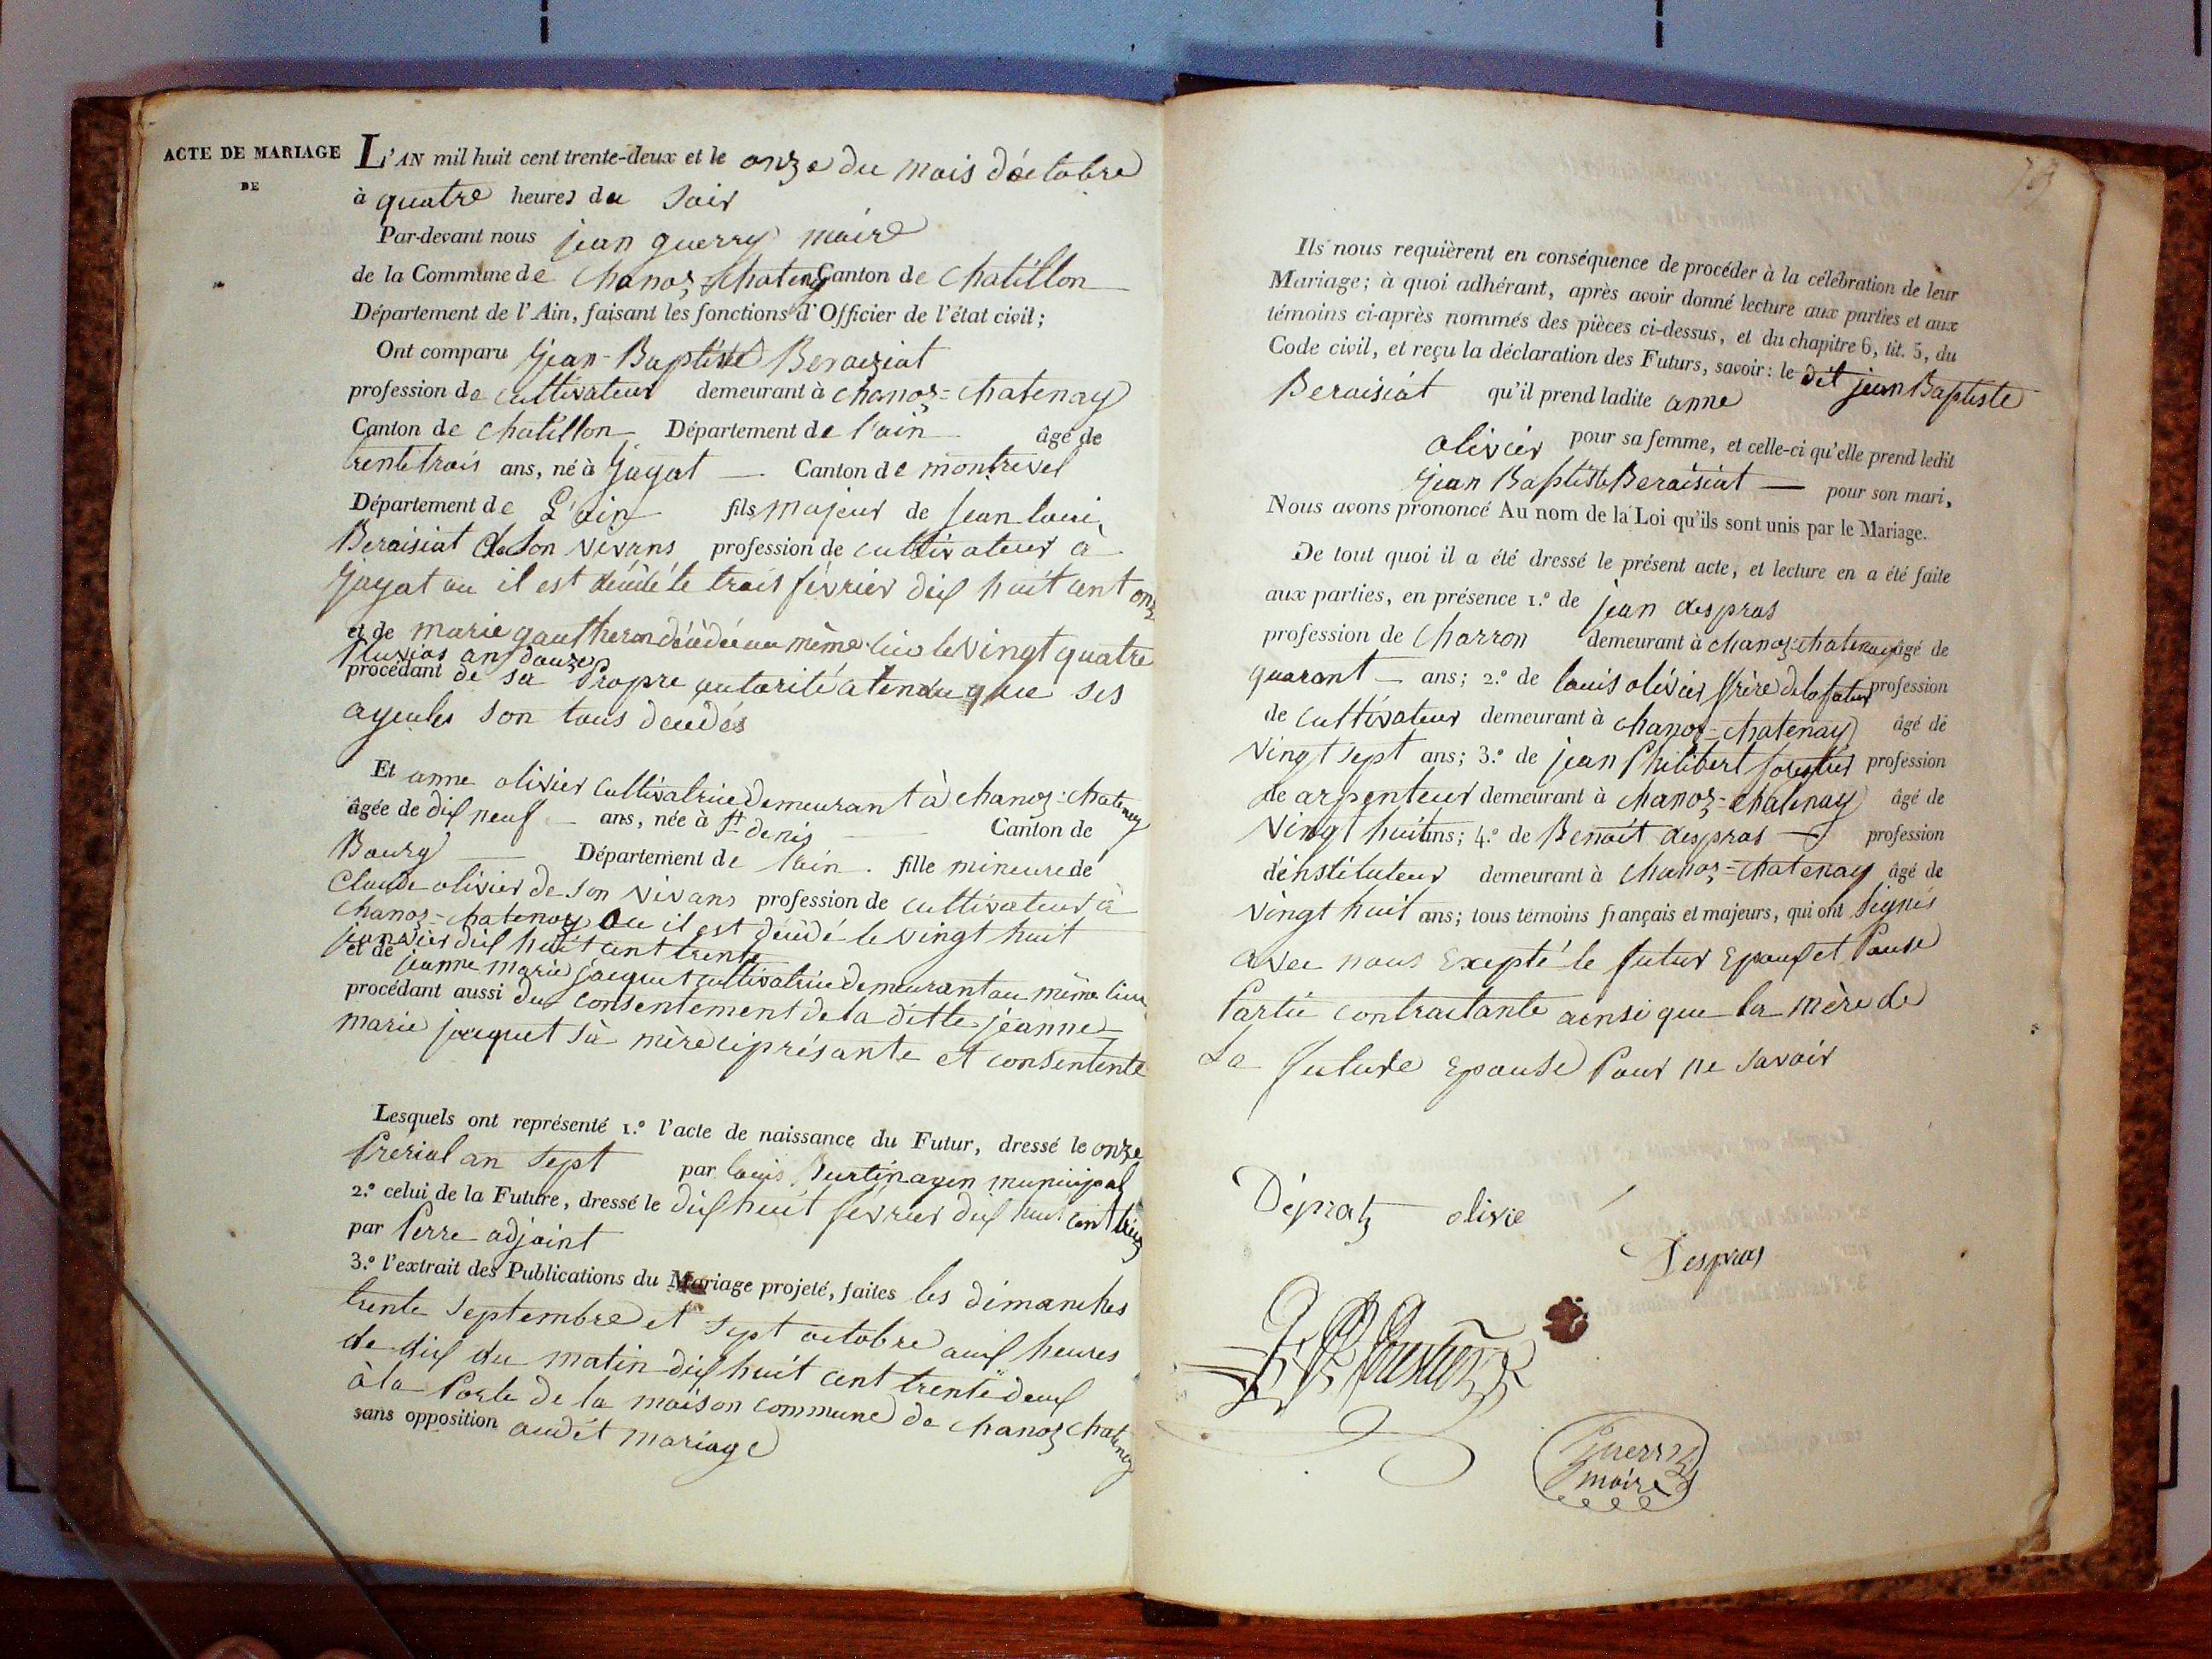 ACTE DE MARIAGE
DE
L'AN mil huit cent trente-deux et le onze du mois d'octobre
à quatre heures du soir
Par-devant nous jean guerry maire
de la Commune de Chanoz-Chatenay Canton de chatillon
Département de l'Ain, faisant les fonctions d'Officier de l'état civil;
Ont comparu jean-Baptiste Beraisiat
profession de cultivateur demeurant à chanoz-chatenay
Canton de chatillon Département de l'ain âgé de
trente trois ans, né à jayat — Canton de montrevel
Département de L'ain fils majeur de jean louis
Beraisiat de son vivans profession de cultivateur à
jayat ou il est décédé le trois février dix huit cent onze
et de marie gautheron décédée au même lieu le vingt quatre
pluvios an douze
procédant de sa propre autorité atendu que ses
ayeules son tous décédés
Et anne olivier cultivatrice demeurant à chanoz-chatenay
âgée de dix neuf — ans, née à St denis — Canton de
Bourg — Département de l'ain. fille mineure de
Claude olivier de son vivans profession de cultivateur à
chanoz-chatenay ou il est décédé le vingt huit
janvier dix huit cent trente
et de jeanne marie jacquet cultivatrice demeurant au même lieu
procédant aussi du consentement de la ditte jeanne
marie jacquet sa mère ci présante et consentente
Lesquels ont représenté 1.º l'acte de naissance du Futur, dressé le onze
prérial an sept par louis Burtin agen municipal
2.º celui de la Future, dressé le dix huit février dix huit cent treize
par Perre adjoint
3.º l'extrait des Publications du Mariage projeté, faites les dimanches
trente septembre et sept octobre aux heures
de dix du matin dix huit cent trente deux
à la porte de la maison commune de chanoz chatenay
sans opposition audit mariage
Ils nous requièrent en conséquence de procéder à la célébration de leur
Mariage; à quoi adhérant, après avoir donné lecture aux parties et aux
témoins ci-après nommés des pièces ci-dessus, et du chapitre 6, tit. 5, du
Code civil, et reçu la déclaration des Futurs, savoir: le dit jean Baptiste
Beraisiat qu'il prend ladite anne
olivier pour sa femme, et celle-ci qu'elle prend ledit
jean Baptiste Beraisiat — pour son mari,
Nous avons prononcé Au nom de la Loi qu'ils sont unis par le Mariage.
De tout quoi il a été dressé le présent acte, et lecture en a été faite
aux parties, en présence 1.º de jean despras
profession de Charron demeurant à chanoz-chatenay âgé de
quarant — ans; 2.º de louis olivier frère de la futur profession
de cultivateur demeurant à chanoz-chatenay âgé de
vingt sept ans; 3.º de jean philibert forestier profession
de arpenteur demeurant à chanoz-chatenay âgé de
vingt huit ans; 4.º de Benoit despras — profession
d'énstituteur demeurant à chanoz-chatenay âgé de
vingt huit ans; tous témoins français et majeurs, qui ont signés
avec nous excepté le futur Epoux et l'ause
partie contractante ainsi que la mère de
La future Epouse pour ne savoir
Dépratz olivie
Despras
Guerry
maire